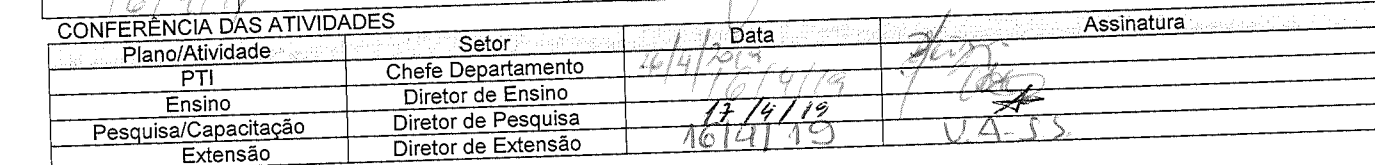 CONFERÊNCIA DAS ATIVIDADES
Plano/Atividade Setor Data Assinatura
PTI Chefe Departamento 16/4/2019
Ensino Diretor de Ensino 16/4/19
Pesquisa/Capacitação Diretor de Pesquisa 17/4/19
Extensão Diretor de Extensão 16/4/19 V.A-SS.